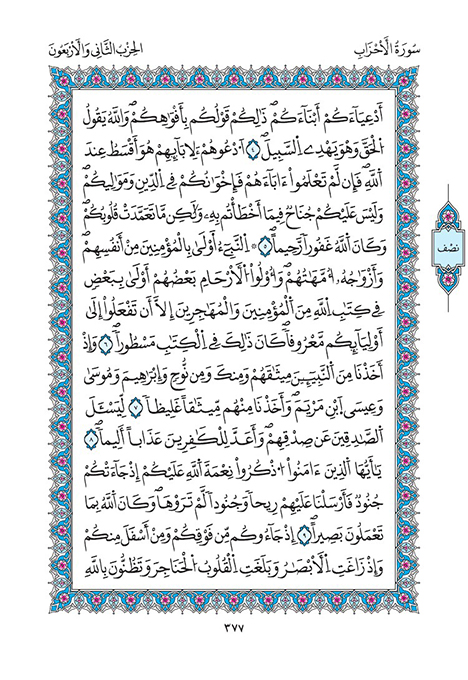 سُورَةُ الْأَحْزَابِ
الحِزْبُ الثَّانِي وَالْأَرْبَعُونَ
أَدْعِيَآءَكُمْ أَبْنَآءَكُمْ ذَٰلِكُمْ قَوْلُكُم بِأَفْوَٰهِكُمْ وَاللَّهُ يَقُولُ
الْحَقَّ وَهُوَ يَهْدِے السَّبِيلَ ٤ اَدْعُوهُمْ لِأَبَآئِهِمْ هُوَ أَقْسَطُ عِندَ
اللَّهِ فَإِن لَّمْ تَعْلَمُواْ ءَابَآءَهُمْ فَإِخْوَٰنُكُمْ فِے الدِّينِ وَمَوَٰلِيكُمْ
وَلَيْسَ عَلَيْكُمْ جُنَاحٌ فِيمَا أَخْطَأْتُم بِهِۦ وَلَٰكِن مَّا تَعَمَّدَتْ قُلُوبُكُمْ
وَكَانَ اللَّهُ غَفُوراً رَّحِيماً ٥ اَلنَّبِےٓءُ أَوْلَىٰ بِالْمُؤْمِنِينَ مِنْ أَنفُسِهِمْ
وَأَزْوَٰجُهُۥ أُمَّهَٰتُهُمْ وَأُوْلُواْ الْأَرْحَامِ بَعْضُهُمْ أَوْلَىٰ بِبَعْضٍ
فِے كِتَٰبِ اللَّهِ مِنَ الْمُؤْمِنِينَ وَالْمُهَٰجِرِينَ إِلَّا أَن تَفْعَلُواْ إِلَىٰ
أَوْلِيَآئِكُم مَّعْرُوفاً كَانَ ذَٰلِكَ فِے الْكِتَٰبِ مَسْطُوراً ٦ وَإِذْ
أَخَذْنَا مِنَ النَّبِيٓـِٕينَ مِيثَٰقَهُمْ وَمِنكَ وَمِن نُّوحٍ وَإِبْرَٰهِيمَ وَمُوسَىٰ
وَعِيسَى اَبْنِ مَرْيَمَ وَأَخَذْنَا مِنْهُم مِّيثَٰقاً غَلِيظاً ٧ لِّيَسْـَٔلَ
الصَّٰدِقِينَ عَن صِدْقِهِمْ وَأَعَدَّ لِلْكَٰفِرِينَ عَذَاباً أَلِيماً ٨
يَٰٓأَيُّهَا الَّذِينَ ءَامَنُواْ اُذْكُرُواْ نِعْمَةَ اللَّهِ عَلَيْكُمْ إِذْ جَآءَتْكُمْ
جُنُودٌ فَأَرْسَلْنَا عَلَيْهِمْ رِيحاً وَجُنُوداً لَّمْ تَرَوْهَا وَكَانَ اللَّهُ بِمَا
تَعْمَلُونَ بَصِيراً ٩ إِذْ جَآءُوكُم مِّن فَوْقِكُمْ وَمِنْ أَسْفَلَ مِنكُمْ
وَإِذْ زَاغَتِ الْأَبْصَٰرُ وَبَلَغَتِ الْقُلُوبُ الْحَنَاجِرَ وَتَظُنُّونَ بِاللَّهِ
نصف
٣٧٧